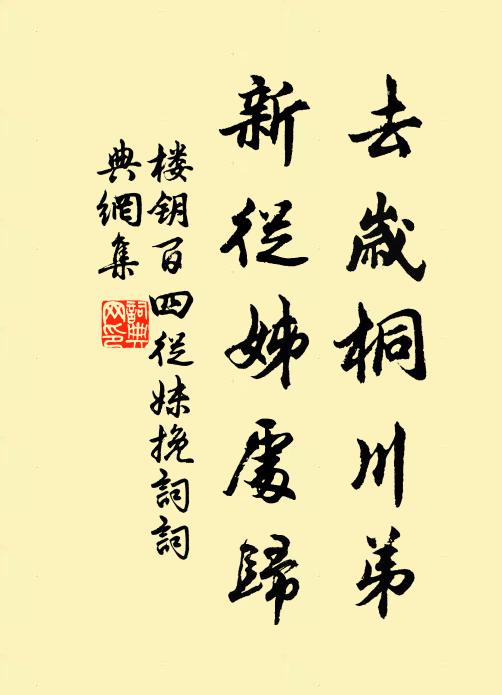 去歳桐川弟
新從姊處歸
楼钥百四從妹挽詞詞
典網集
詞典網印